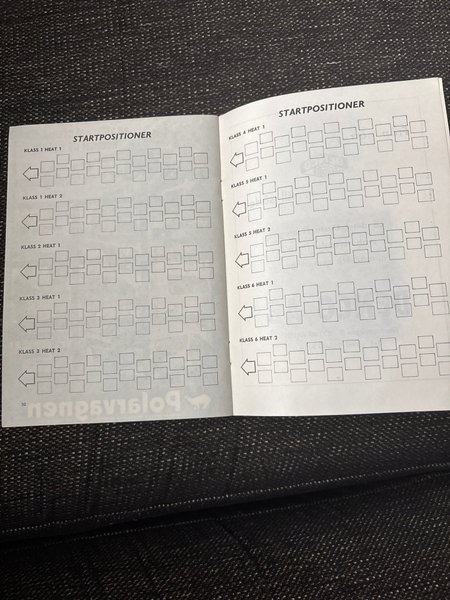 STARTPOSITIONER
KLASS 1 HEAT 1
KLASS 1 HEAT 2
KLASS 2 HEAT 1
KLASS 3 HEAT 1
KLASS 3 HEAT 2
Polarvagnen
STARTPOSITIONER
KLASS 4 HEAT 1
KLASS 5 HEAT 1
KLASS 5 HEAT 2
KLASS 6 HEAT 1
KLASS 6 HEAT 2